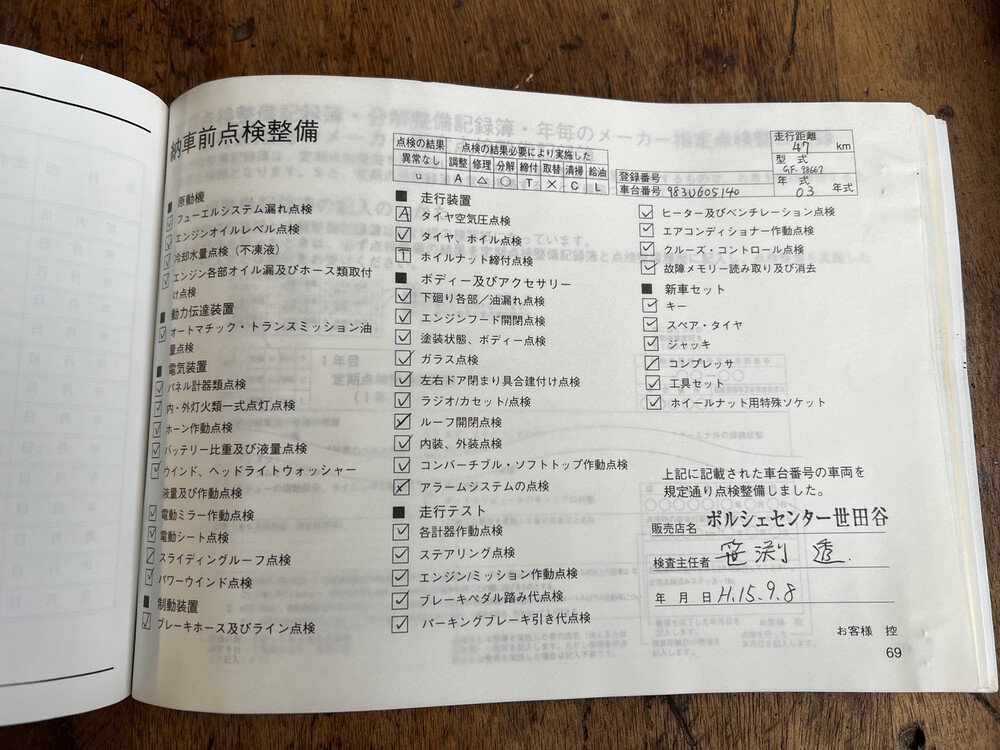 納車前点検整備
点検の結果 点検の結果必要により実施した
異常なし 調整 修理 分解 締付 取替 清掃 給油
u A △ ○ T × C L
走行距離
47 km
型式
GF-98667
登録番号
年式
車台番号 983U605140 03 年式
■ 原動機
フューエルシステム漏れ点検
エンジンオイルレベル点検
冷却水量点検（不凍液）
エンジン各部オイル漏及びホース類取付
け点検
■ 動力伝達装置
オートマチック・トランスミッション油
量点検
■ 電気装置
パネル計器類点検
内・外灯火類一式点灯点検
ホーン作動点検
バッテリー比重及び液量点検
ウインド、ヘッドライトウォッシャー
液量及び作動点検
電動ミラー作動点検
電動シート点検
スライディングルーフ点検
パワーウインド点検
■ 制動装置
ブレーキホース及びライン点検
■ 走行装置
A タイヤ空気圧点検
タイヤ、ホイル点検
T ホイルナット締付点検
■ ボディー及びアクセサリー
下廻り各部／油漏れ点検
エンジンフード開閉点検
塗装状態、ボディー点検
ガラス点検
左右ドア閉まり具合建付け点検
ラジオ/カセット/点検
ルーフ開閉点検
内装、外装点検
コンバーチブル・ソフトトップ作動点検
アラームシステムの点検
■ 走行テスト
各計器作動点検
ステアリング点検
エンジン/ミッション作動点検
ブレーキペダル踏み代点検
パーキングブレーキ引き代点検
ヒーター及びベンチレーション点検
エアコンディショナー作動点検
クルーズ・コントロール点検
故障メモリー読み取り及び消去
■ 新車セット
キー
スペア・タイヤ
ジャッキ
コンプレッサ
工具セット
ホイールナット用特殊ソケット
上記に記載された車台番号の車両を
規定通り点検整備しました。
販売店名 ポルシェセンター世田谷
検査主任者 笹渕 透
年 月 日 H.15.9.8
お客様 控
69